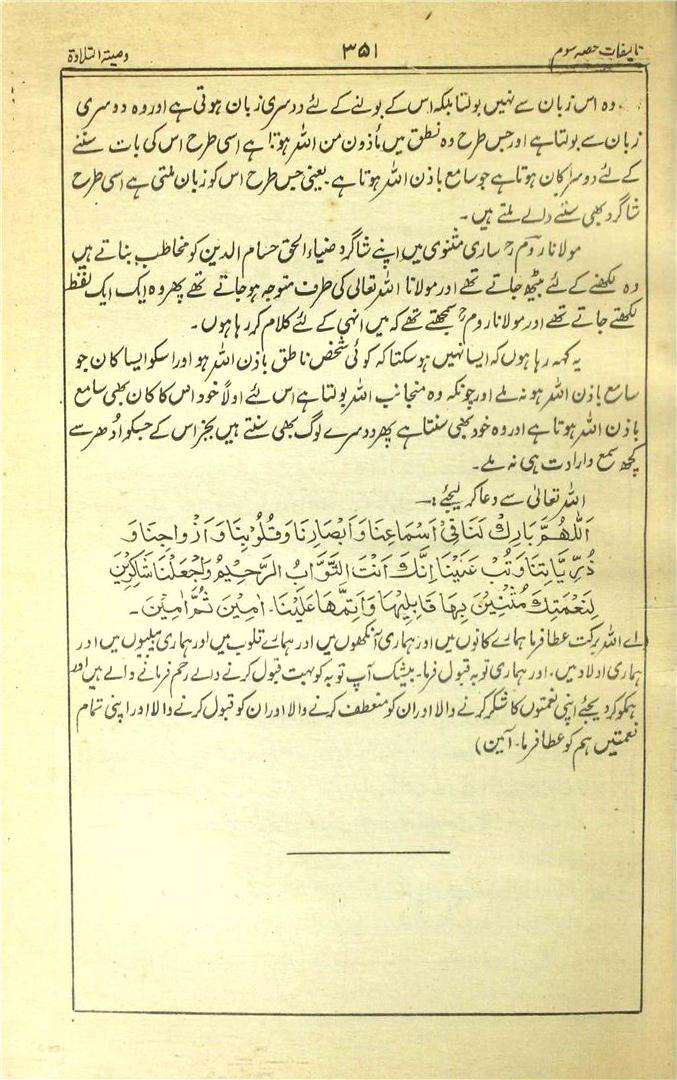 تالیفات حصہ سوم ۳۵۱ وصیۃ التلاوۃ
وہ اس زبان سے نہیں بولتا بلکہ اس کے بولنے کے لئے دوسری زبان ہوتی ہے اور وہ دوسری
زبان سے بولتا ہے اور جس طرح وہ نطق میں مأذون من اللہ ہوتا ہے اسی طرح اس کی بات سننے
کے لئے دوسرا کان ہوتا ہے جو سامع باذن اللہ ہوتا ہے۔ یعنی جس طرح اس کو زبان ملتی ہے اسی طرح
شاگرد بھی سننے والے ملتے ہیں۔
مولانا رومؒ ساری مثنوی میں اپنے شاگرد ضیاء الحق حسام الدین کو مخاطب بناتے ہیں
وہ لکھنے کے لئے بیٹھ جاتے تھے اور مولانا اللہ تعالی کی طرف متوجہ ہو جاتے تھے پھر وہ ایک ایک لفظ
لکھتے جاتے تھے اور مولانا رومؒ سمجھتے تھے کہ میں انہی کے لئے کلام کر رہا ہوں۔
یہ کہہ رہا ہوں کہ ایسا نہیں ہو سکتا کہ کوئی شخص ناطق باذن اللہ ہو اور اسکو ایسا کان جو
سامع باذن اللہ ہو نہ ملے اور چونکہ وہ منجانب اللہ بولتا ہے اس لئے اولاً خود اس کا کان بھی سامع
باذن اللہ ہوتا ہے اور وہ خود بھی سنتا ہے پھر دوسرے لوگ بھی سنتے ہیں بجز اس کے جسکو ادُھر سے
کچھ سمع وارادت ہی نہ ملے۔
اللہ تعالیٰ سے دعا کر لیجئے:۔
اَللّٰهُمَّ بَارِكْ لَنَا فِيْ اَسْمَاعِنَا وَاَبْصَارِنَا وَقُلُوْبِنَا وَاَزْوَاجِنَا وَ
ذُرِّيَّاتِنَا وَتُبْ عَلَيْنَا اِنَّكَ اَنْتَ التَّوَّابُ الرَّحِيْمُ وَاجْعَلْنَا شَاكِرِيْنَ
لِنِعْمَتِكَ مُثْنِيْنَ بِهَا قَابِلِيْهَا وَاَتِمَّهَا عَلَيْنَا۔ اٰمِيْنَ ثُمَّ اٰمِيْنَ۔
(اے اللہ برکت عطا فرما ہمارے کانوں میں اور ہماری آنکھوں میں اور ہمارے قلوب میں اور ہماری بیبیوں میں اور
ہماری اولاد میں۔ اور ہماری توبہ قبول فرما۔ بیشک آپ توبہ کو بہت قبول کرنے والے رحم فرمانے والے ہیں اور
ہمکو کر دیجئے اپنی نعمتوں کا شکر کرنے والا اور ان کو منعطف کرنے والا اور ان کو قبول کرنے والا اور اپنی تمام
نعمتیں ہم کو عطا فرما۔ آمین)